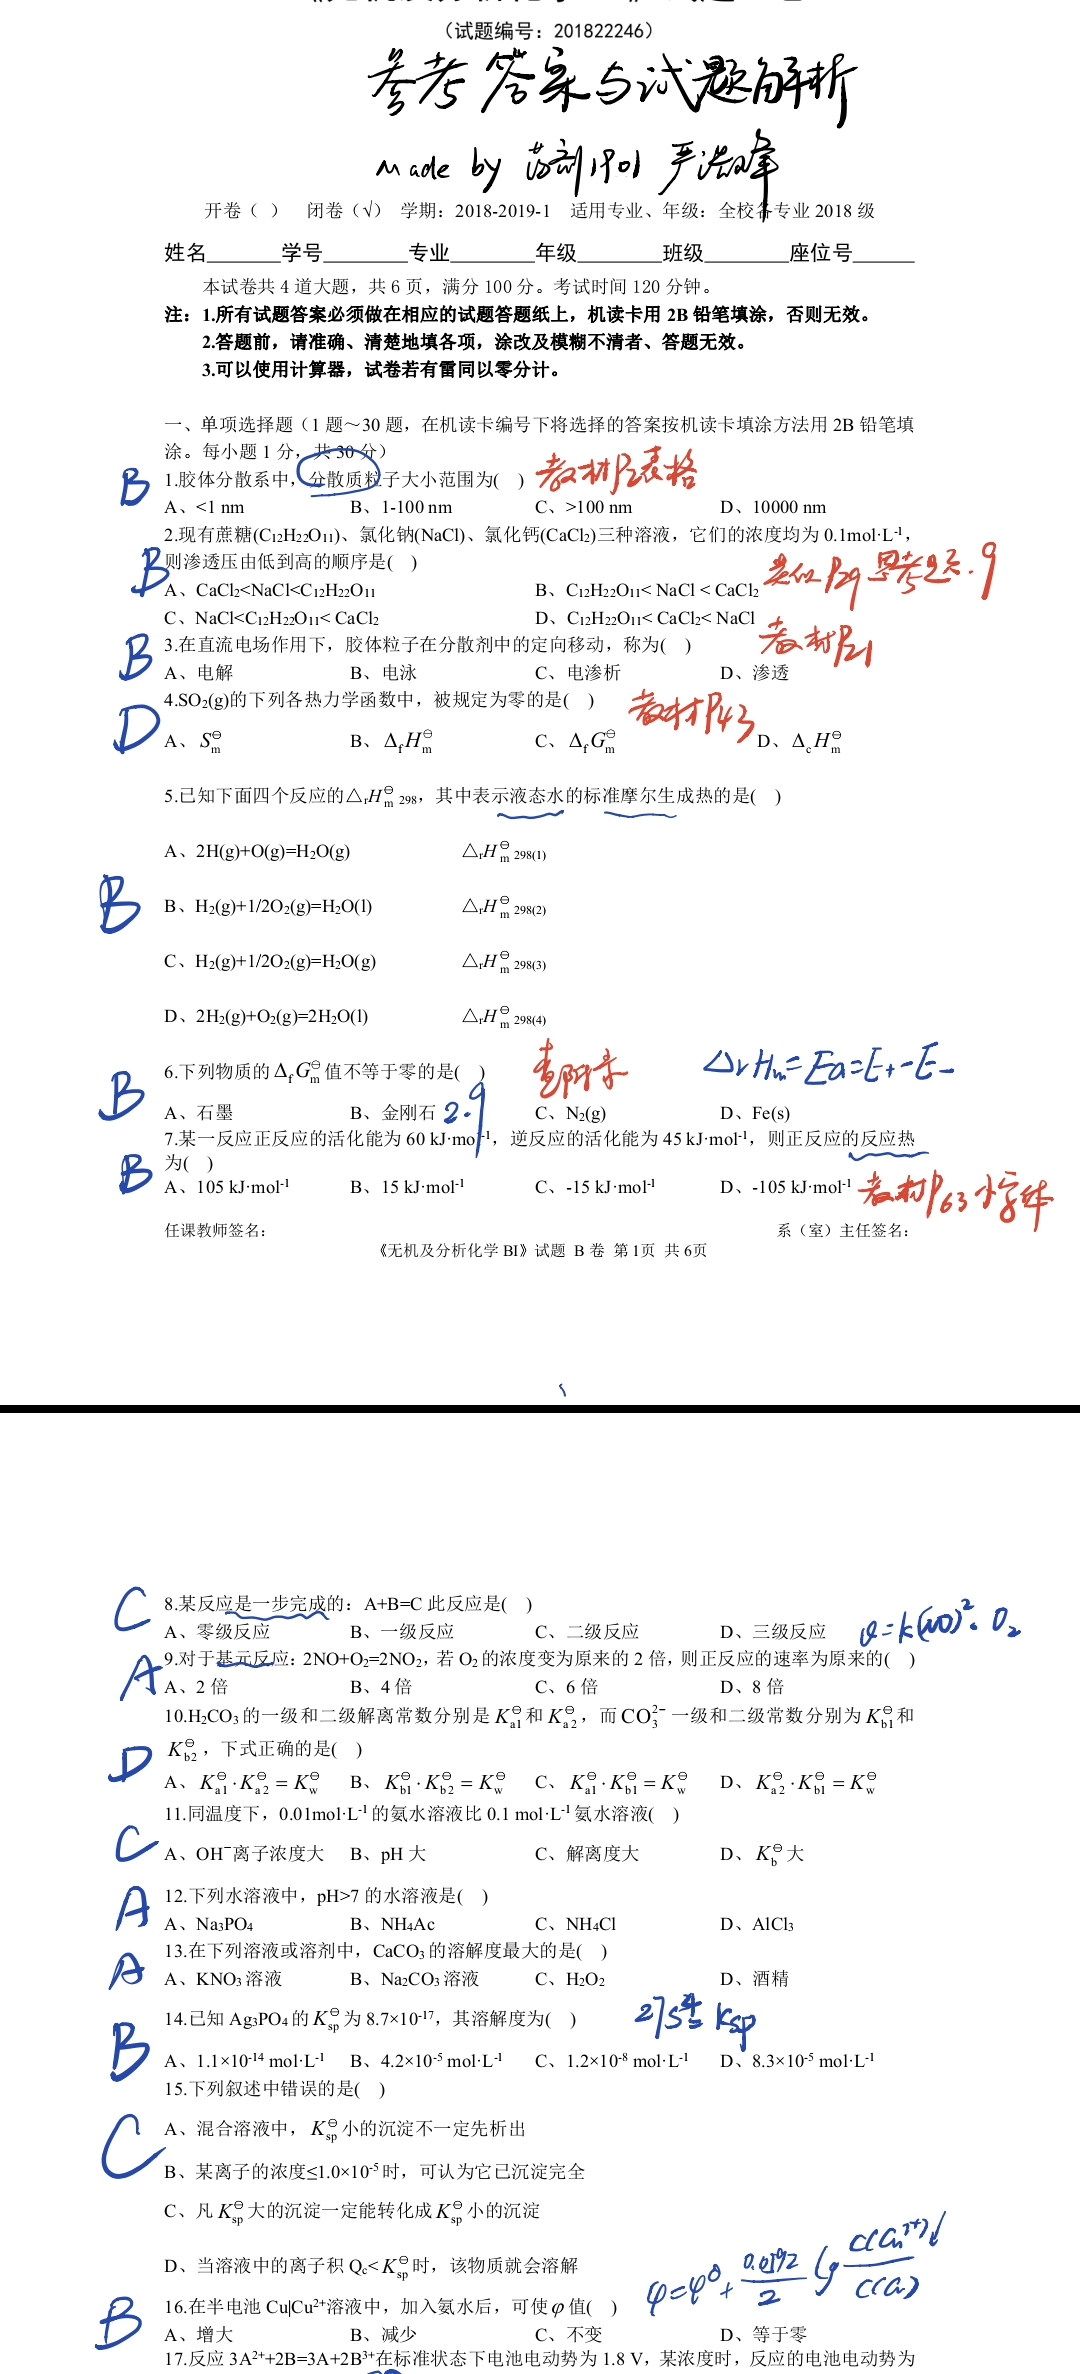 （试题编号：201822246）
参考答案与试题解析
made by 药剂1901 严浩峰
开卷（ ） 闭卷（√） 学期：2018-2019-1 适用专业、年级：全校各专业 2018 级
姓名______学号______专业______年级______班级______座位号______
本试卷共 4 道大题，共 6 页，满分 100 分。考试时间 120 分钟。
注：1.所有试题答案必须做在相应的试题答题纸上，机读卡用 2B 铅笔填涂，否则无效。
2.答题前，请准确、清楚地填各项，涂改及模糊不清者、答题无效。
3.可以使用计算器，试卷若有雷同以零分计。
一、单项选择题（1 题～30 题，在机读卡编号下将选择的答案按机读卡填涂方法用 2B 铅笔填
涂。每小题 1 分，共 30 分）
B 1.胶体分散系中，分散质粒子大小范围为( ) 教材P2表格
A、<1 nm B、1-100 nm C、>100 nm D、10000 nm
2.现有蔗糖(C₁₂H₂₂O₁₁)、氯化钠(NaCl)、氯化钙(CaCl₂)三种溶液，它们的浓度均为 0.1mol·L⁻¹，
B 则渗透压由低到高的顺序是( ) 类似P29思考题.9
A、CaCl₂<NaCl<C₁₂H₂₂O₁₁ B、C₁₂H₂₂O₁₁< NaCl < CaCl₂
C、NaCl<C₁₂H₂₂O₁₁< CaCl₂ D、C₁₂H₂₂O₁₁< CaCl₂< NaCl
B 3.在直流电场作用下，胶体粒子在分散剂中的定向移动，称为( ) 教材P21
A、电解 B、电泳 C、电渗析 D、渗透
D 4.SO₂(g)的下列各热力学函数中，被规定为零的是( ) 教材P43
A、S⊖m B、ΔfH⊖m C、ΔfG⊖m D、ΔcH⊖m
5.已知下面四个反应的△rH⊖m 298，其中表示液态水的标准摩尔生成热的是( )
A、2H(g)+O(g)=H₂O(g) △rH⊖m 298(1)
B B、H₂(g)+1/2O₂(g)=H₂O(l) △rH⊖m 298(2)
C、H₂(g)+1/2O₂(g)=H₂O(g) △rH⊖m 298(3)
D、2H₂(g)+O₂(g)=2H₂O(l) △rH⊖m 298(4)
B 6.下列物质的ΔfG⊖m值不等于零的是( ) 查附录 ΔrHm=Ea=E₊-E₋
A、石墨 B、金刚石 2.9 C、N₂(g) D、Fe(s)
7.某一反应正反应的活化能为 60 kJ·mol⁻¹，逆反应的活化能为 45 kJ·mol⁻¹，则正反应的反应热
B 为( )
A、105 kJ·mol⁻¹ B、15 kJ·mol⁻¹ C、-15 kJ·mol⁻¹ D、-105 kJ·mol⁻¹ 教材P63小字体
任课教师签名： 系（室）主任签名：
《无机及分析化学 BI》试题 B 卷 第 1页 共 6页
C 8.某反应是一步完成的：A+B=C 此反应是( )
A、零级反应 B、一级反应 C、二级反应 D、三级反应 v=k(NO)²·O₂
A 9.对于基元反应：2NO+O₂=2NO₂，若 O₂ 的浓度变为原来的 2 倍，则正反应的速率为原来的( )
A、2 倍 B、4 倍 C、6 倍 D、8 倍
10.H₂CO₃ 的一级和二级解离常数分别是 K⊖a1 和 K⊖a2，而 CO₃²⁻ 一级和二级常数分别为 K⊖b1 和
D K⊖b2，下式正确的是( )
A、K⊖a1·K⊖a2=K⊖w B、K⊖b1·K⊖b2=K⊖w C、K⊖a1·K⊖b1=K⊖w D、K⊖a2·K⊖b1=K⊖w
11.同温度下，0.01mol·L⁻¹ 的氨水溶液比 0.1 mol·L⁻¹ 氨水溶液( )
C A、OH⁻离子浓度大 B、pH 大 C、解离度大 D、K⊖b 大
A 12.下列水溶液中，pH>7 的水溶液是( )
A、Na₃PO₄ B、NH₄Ac C、NH₄Cl D、AlCl₃
A 13.在下列溶液或溶剂中，CaCO₃ 的溶解度最大的是( )
A、KNO₃ 溶液 B、Na₂CO₃ 溶液 C、H₂O₂ D、酒精
B 14.已知 Ag₃PO₄ 的 K⊖sp 为 8.7×10⁻¹⁷，其溶解度为( ) 27S⁴=Ksp
A、1.1×10⁻¹⁴ mol·L⁻¹ B、4.2×10⁻⁵ mol·L⁻¹ C、1.2×10⁻⁸ mol·L⁻¹ D、8.3×10⁻⁵ mol·L⁻¹
15.下列叙述中错误的是( )
C A、混合溶液中，K⊖sp 小的沉淀不一定先析出
B、某离子的浓度≤1.0×10⁻⁵ 时，可认为它已沉淀完全
C、凡 K⊖sp 大的沉淀一定能转化成 K⊖sp 小的沉淀
D、当溶液中的离子积 Qc< K⊖sp 时，该物质就会溶解
φ=φ⊖+0.0592/2 lg c(Cu²⁺)↓/c(Cu)
B 16.在半电池 Cu|Cu²⁺溶液中，加入氨水后，可使 φ 值( )
A、增大 B、减少 C、不变 D、等于零
17.反应 3A²⁺+2B=3A+2B³⁺在标准状态下电池电动势为 1.8 V，某浓度时，反应的电池电动势为